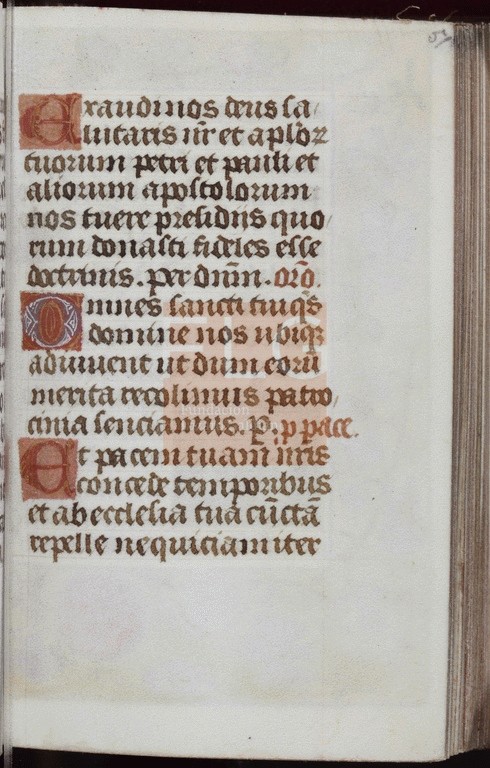 51
Exaudi nos deus sa/
lutaris nr̄ et apl̄oꝝ
tuorum petri et pauli et
aliorum apostolorum
nos tuere presidiis quo/
rum donasti fideles esse
doctrinis. per dnm̄. orō.
Omnes sancti tui qs̄
domine nos ubiqꝫ
adiuuent ut dum eorū
merita recolimus patro/
cinia senciamus. P. p pace.
Et pacem tuam nr̄is
concede temporibus
et ab ecclesia tuā cūctā
repelle nequiciam iter
Fundación